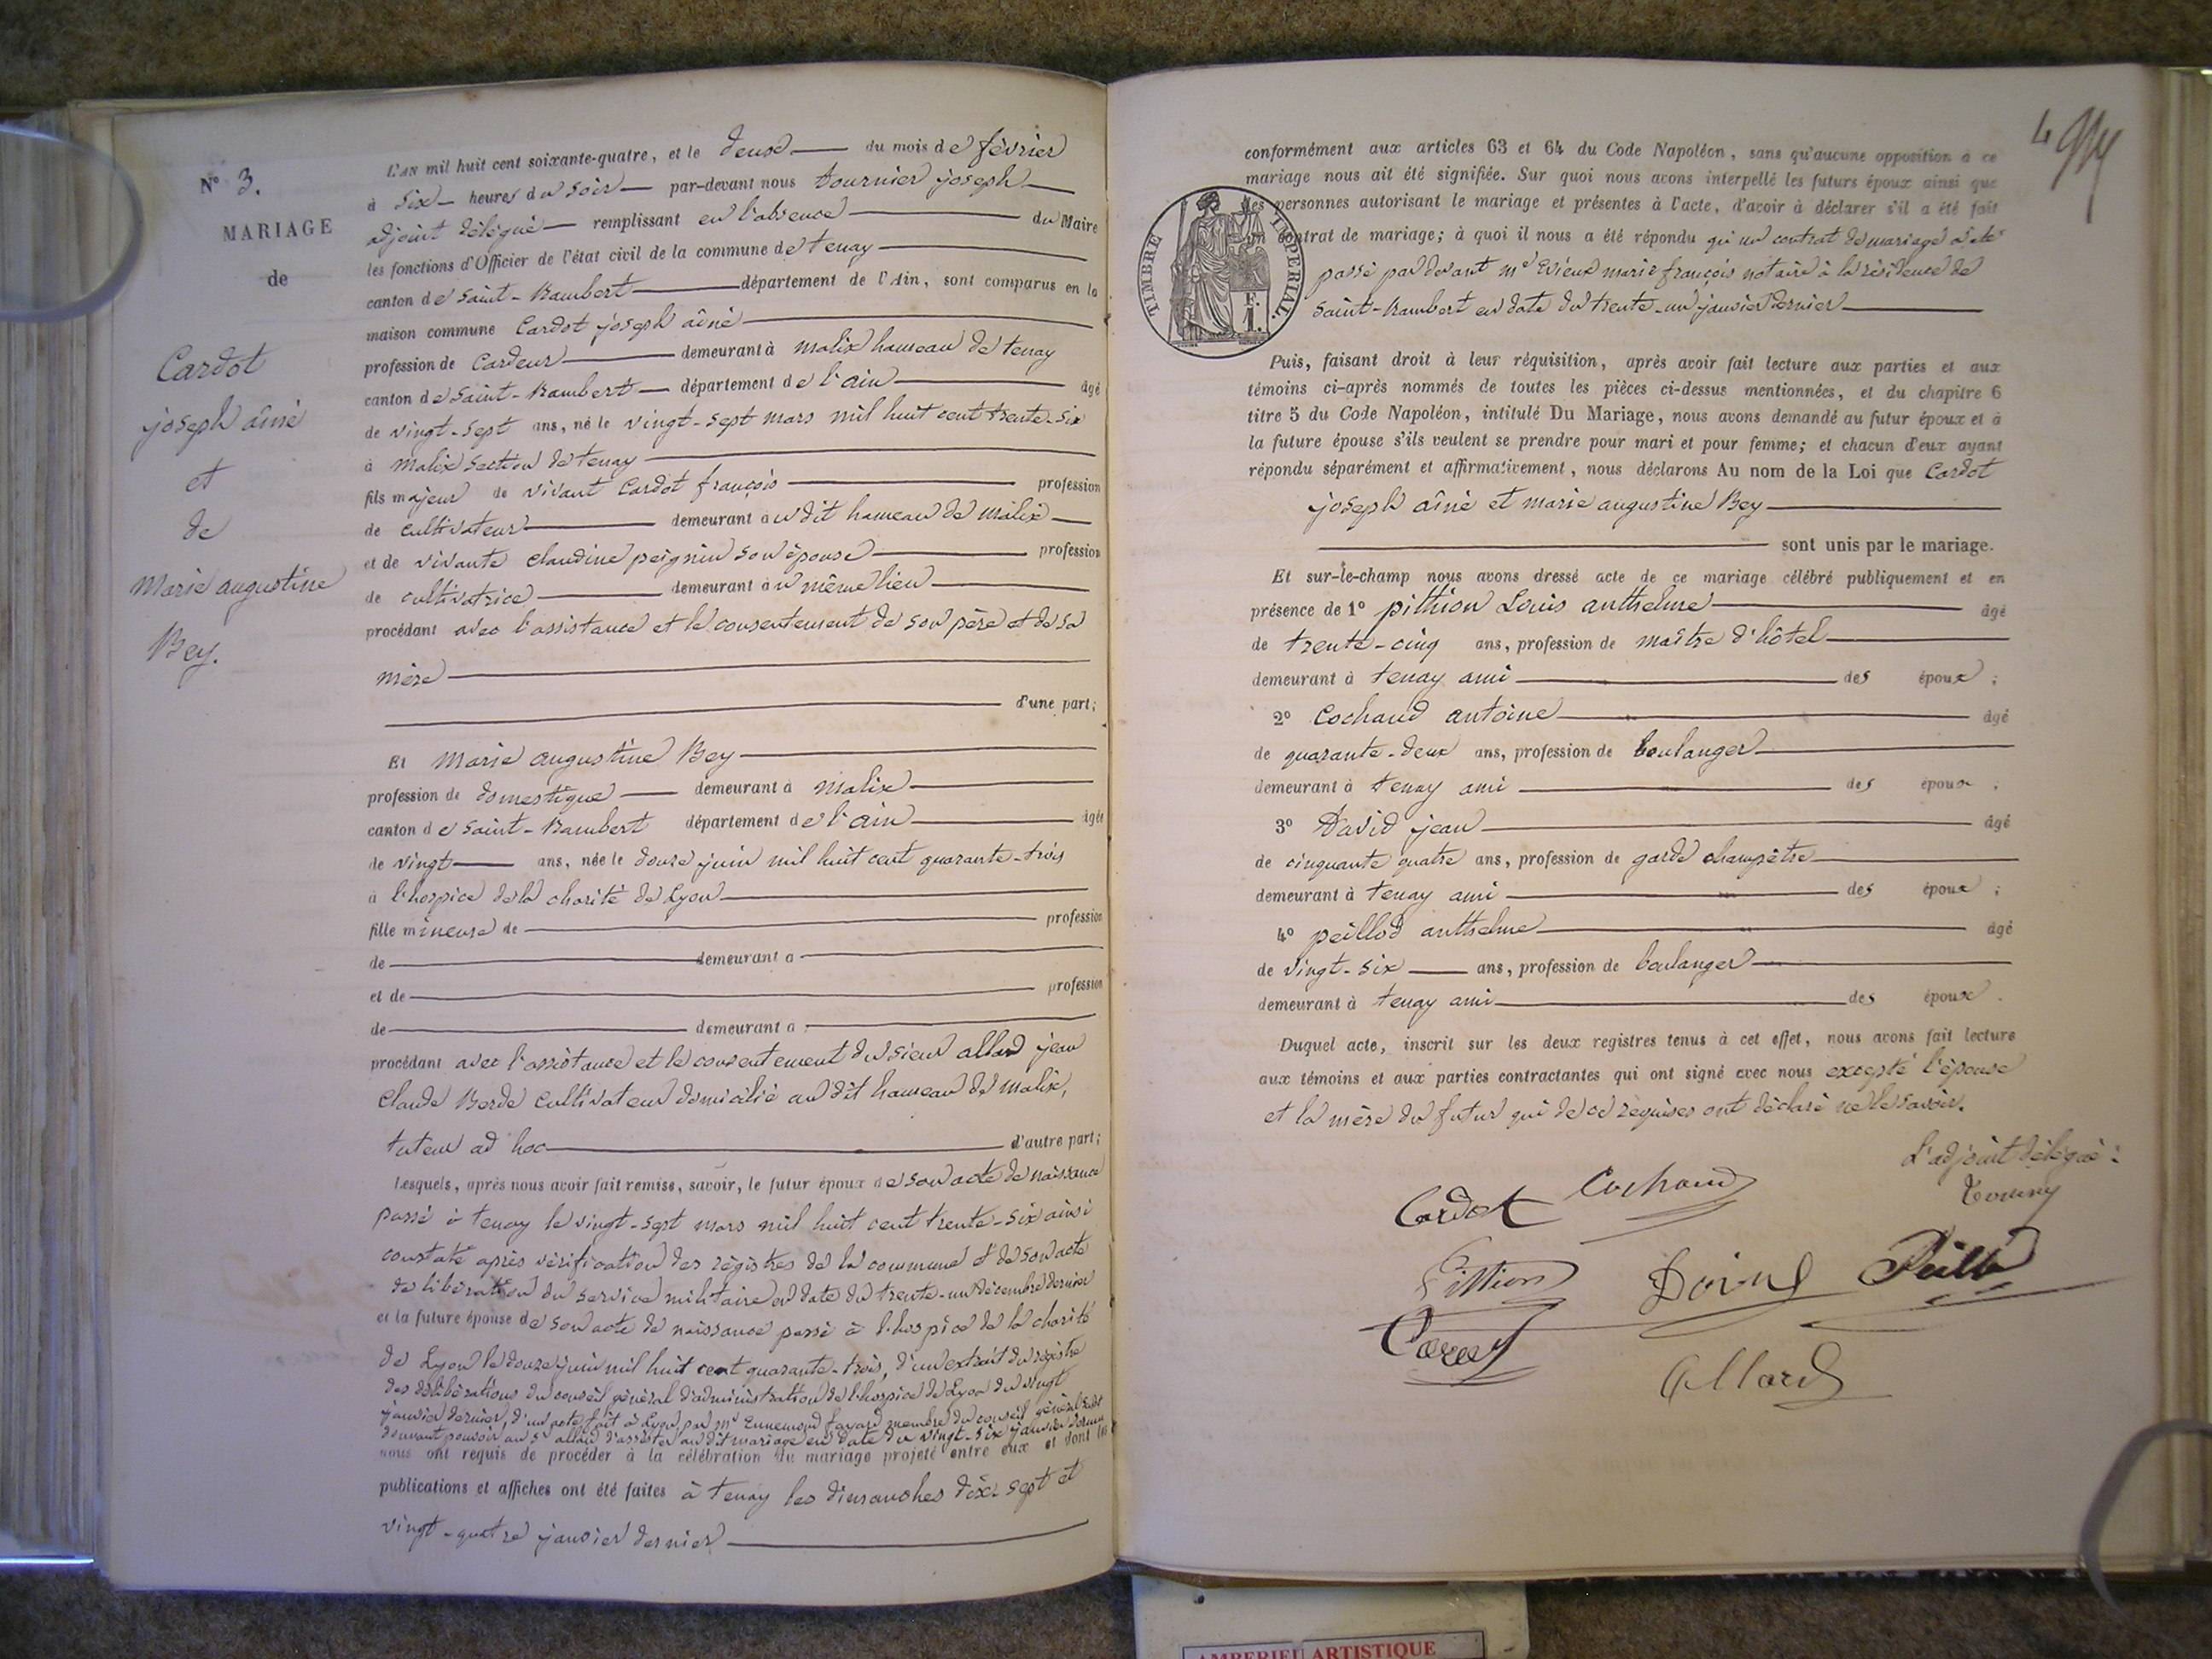 N° 3.
MARIAGE
de
Cardot
joseph aîné
et
de
Marie augustine
Bey.
L'AN mil huit cent soixante-quatre, et le deux du mois de février
à six heures du soir par-devant nous tournier joseph
adjoint délégué remplissant en l'absence du Maire
les fonctions d'Officier de l'état civil de la commune de tenay
canton de saint-Rambert département de l'Ain, sont comparus en la
maison commune Cardot joseph aîné
profession de Cardeur demeurant à malix hameau de tenay
canton de saint-Rambert département de l'ain âgé
de vingt-sept ans, né le vingt-sept mars mil huit cent trente-six
à malix section de tenay
fils majeur de vivant Cardot françois profession
de cultivateur demeurant au dit hameau de malix
et de vivante claudine peignin son épouse profession
de cultivatrice demeurant au même lieu
procédant avec l'assistance et le consentement de son père et de sa
mère
d'une part;
Et Marie augustine Bey
profession de domestique demeurant à malix
canton de saint-Rambert département de l'ain âgée
de vingt ans, née le douze juin mil huit cent quarante-trois
à l'hospice de la charité de Lyon
fille mineure de profession
de demeurant à
et de profession
de demeurant à
procédant avec l'assistance et le consentement du sieur allard jean
claude Borde cultivateur domicilié au dit hameau de malix,
tuteur ad hoc d'autre part;
Lesquels, après nous avoir fait remise, savoir, le futur époux de son acte de naissance
passé à tenay le vingt-sept mars mil huit cent trente-six ainsi
constaté après vérification des régistres de la commune et de son acte
de libération du service militaire en date du trente-un décembre dernier
et la future épouse de son acte de naissance passé à l'hospice de la charité
de Lyon le douze juin mil huit cent quarante-trois, d'un extrait du régistre
des délibérations du conseil général d'administration de l'hospice de Lyon du vingt
janvier dernier, d'un acte fait à Lyon par Mr Ennemond favard membre du conseil général
donnant pouvoir au Sr allard d'assister au dit mariage en date du vingt-six janvier dernier
nous ont requis de procéder à la célébration du mariage projeté entre eux et dont les
publications et affiches ont été faites à tenay les dimanches dix-sept et
vingt-quatre janvier dernier
conformément aux articles 63 et 64 du Code Napoléon, sans qu'aucune opposition à ce
mariage nous ait été signifiée. Sur quoi nous avons interpellé les futurs époux ainsi que
les personnes autorisant le mariage et présentes à l'acte, d'avoir à déclarer s'il a été fait
un contrat de mariage; à quoi il nous a été répondu qu'un contrat de mariage a été
passé par devant me Vieux marie françois notaire à la résidence de
saint-Rambert en date du trente-un janvier dernier
TIMBRE IMPERIAL.
F.
1.
Puis, faisant droit à leur réquisition, après avoir fait lecture aux parties et aux
témoins ci-après nommés de toutes les pièces ci-dessus mentionnées, et du chapitre 6
titre 5 du Code Napoléon, intitulé Du Mariage, nous avons demandé au futur époux et à
la future épouse s'ils veulent se prendre pour mari et pour femme; et chacun d'eux ayant
répondu séparément et affirmativement, nous déclarons Au nom de la Loi que Cardot
joseph aîné et marie augustine Bey
sont unis par le mariage.
Et sur-le-champ nous avons dressé acte de ce mariage célébré publiquement et en
présence de 1° pithion Louis anthelme âgé
de trente-cinq ans, profession de maître d'hôtel
demeurant à tenay ami des époux;
2° Cochand antoine âgé
de quarante-deux ans, profession de boulanger
demeurant à tenay ami des époux;
3° David jean âgé
de cinquante quatre ans, profession de garde champêtre
demeurant à tenay ami des époux;
4° peillod anthelme âgé
de vingt-six ans, profession de boulanger
demeurant à tenay ami des époux.
Duquel acte, inscrit sur les deux registres tenus à cet effet, nous avons fait lecture
aux témoins et aux parties contractantes qui ont signé avec nous excepté l'épouse
et la mère du futur qui de ce requises ont déclaré ne le savoir.
L'adjoint délégué:
Cardot Cochand
Pittion
Allard
AMBERIEU ARTISTIQUE